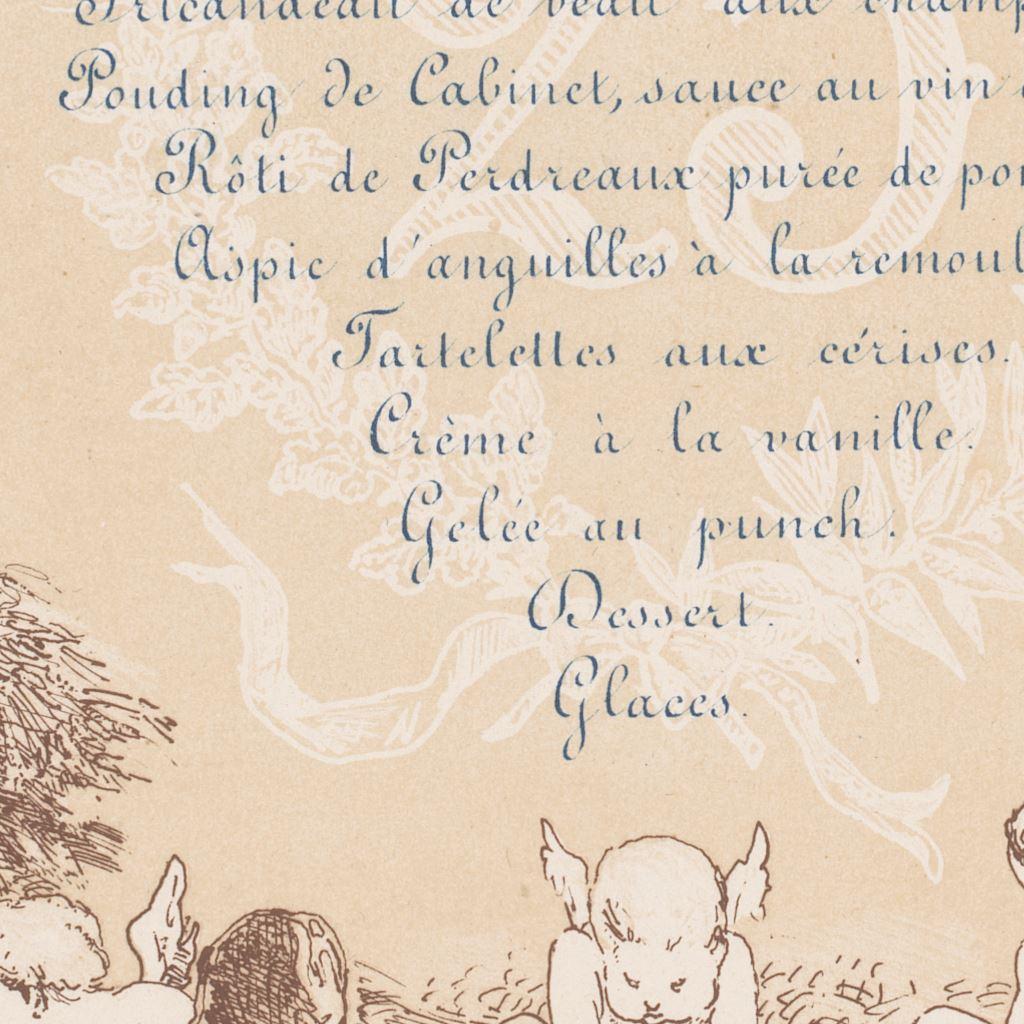 Fricandeau de veau aux
Pouding de Cabinet, sauce au vin
Rôti de Perdreaux purée de
Aspic d'anguilles à la
Tartelettes aux cérises.
Crème à la vanille.
Gelée au punch.
Dessert.
Glaces.
25